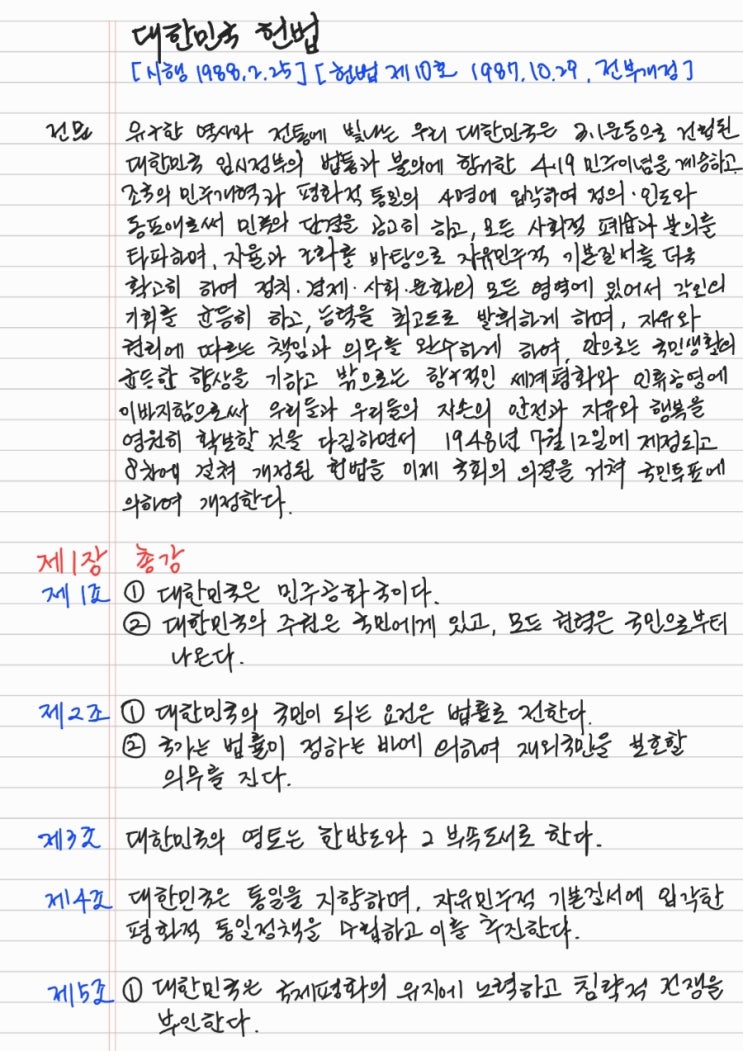 대한민국 헌법
[시행 1988.2.25] [헌법 제10호 1987.10.29, 전부개정]
전문 유구한 역사와 전통에 빛나는 우리 대한민국은 3.1운동으로 건립된
대한민국 임시정부의 법통과 불의에 항거한 4.19 민주이념을 계승하고,
조국의 민주개혁과 평화적 통일의 사명에 입각하여 정의·인도와
동포애로써 민족의 단결을 공고히 하고, 모든 사회적 폐습과 불의를
타파하며, 자율과 조화를 바탕으로 자유민주적 기본질서를 더욱
확고히 하여 정치·경제·사회·문화의 모든 영역에 있어서 각인의
기회를 균등히 하고, 능력을 최고도로 발휘하게 하며, 자유와
권리에 따르는 책임과 의무를 완수하게 하여, 안으로는 국민생활의
균등한 향상을 기하고 밖으로는 항구적인 세계평화와 인류공영에
이바지함으로써 우리들과 우리들의 자손의 안전과 자유와 행복을
영원히 확보할 것을 다짐하면서 1948년 7월 12일에 제정되고
8차에 걸쳐 개정된 헌법을 이제 국회의 의결을 거쳐 국민투표에
의하여 개정한다.
제1장 총강
제1조 ① 대한민국은 민주공화국이다.
② 대한민국의 주권은 국민에게 있고, 모든 권력은 국민으로부터
나온다.
제2조 ① 대한민국의 국민이 되는 요건은 법률로 전한다.
② 국가는 법률이 정하는 바에 의하여 재외국민을 보호할
의무를 진다.
제3조 대한민국의 영토는 한반도와 그 부속도서로 한다.
제4조 대한민국은 통일을 지향하며, 자유민주적 기본질서에 입각한
평화적 통일정책을 수립하고 이를 추진한다.
제5조 ① 대한민국은 국제평화의 유지에 노력하고 침략적 전쟁을
부인한다.